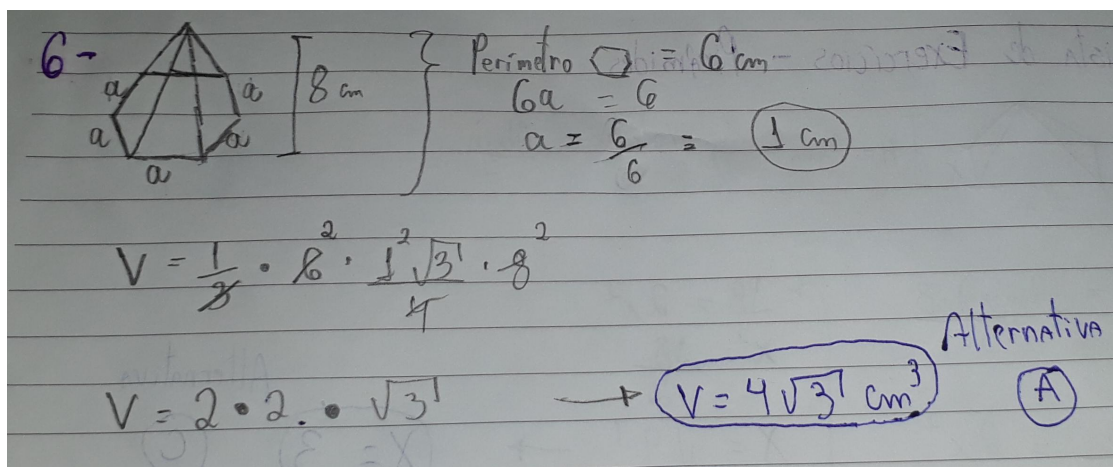 6- a a a a a 8 cm Perímetro ⬡ = 6 cm
6a = 6
a = 6/6 = 1 cm
V = 1/3 · 6² · 1²√3/4 · 8²
V = 2 · 2 . · √3 → V = 4√3 cm³
Alternativa
A